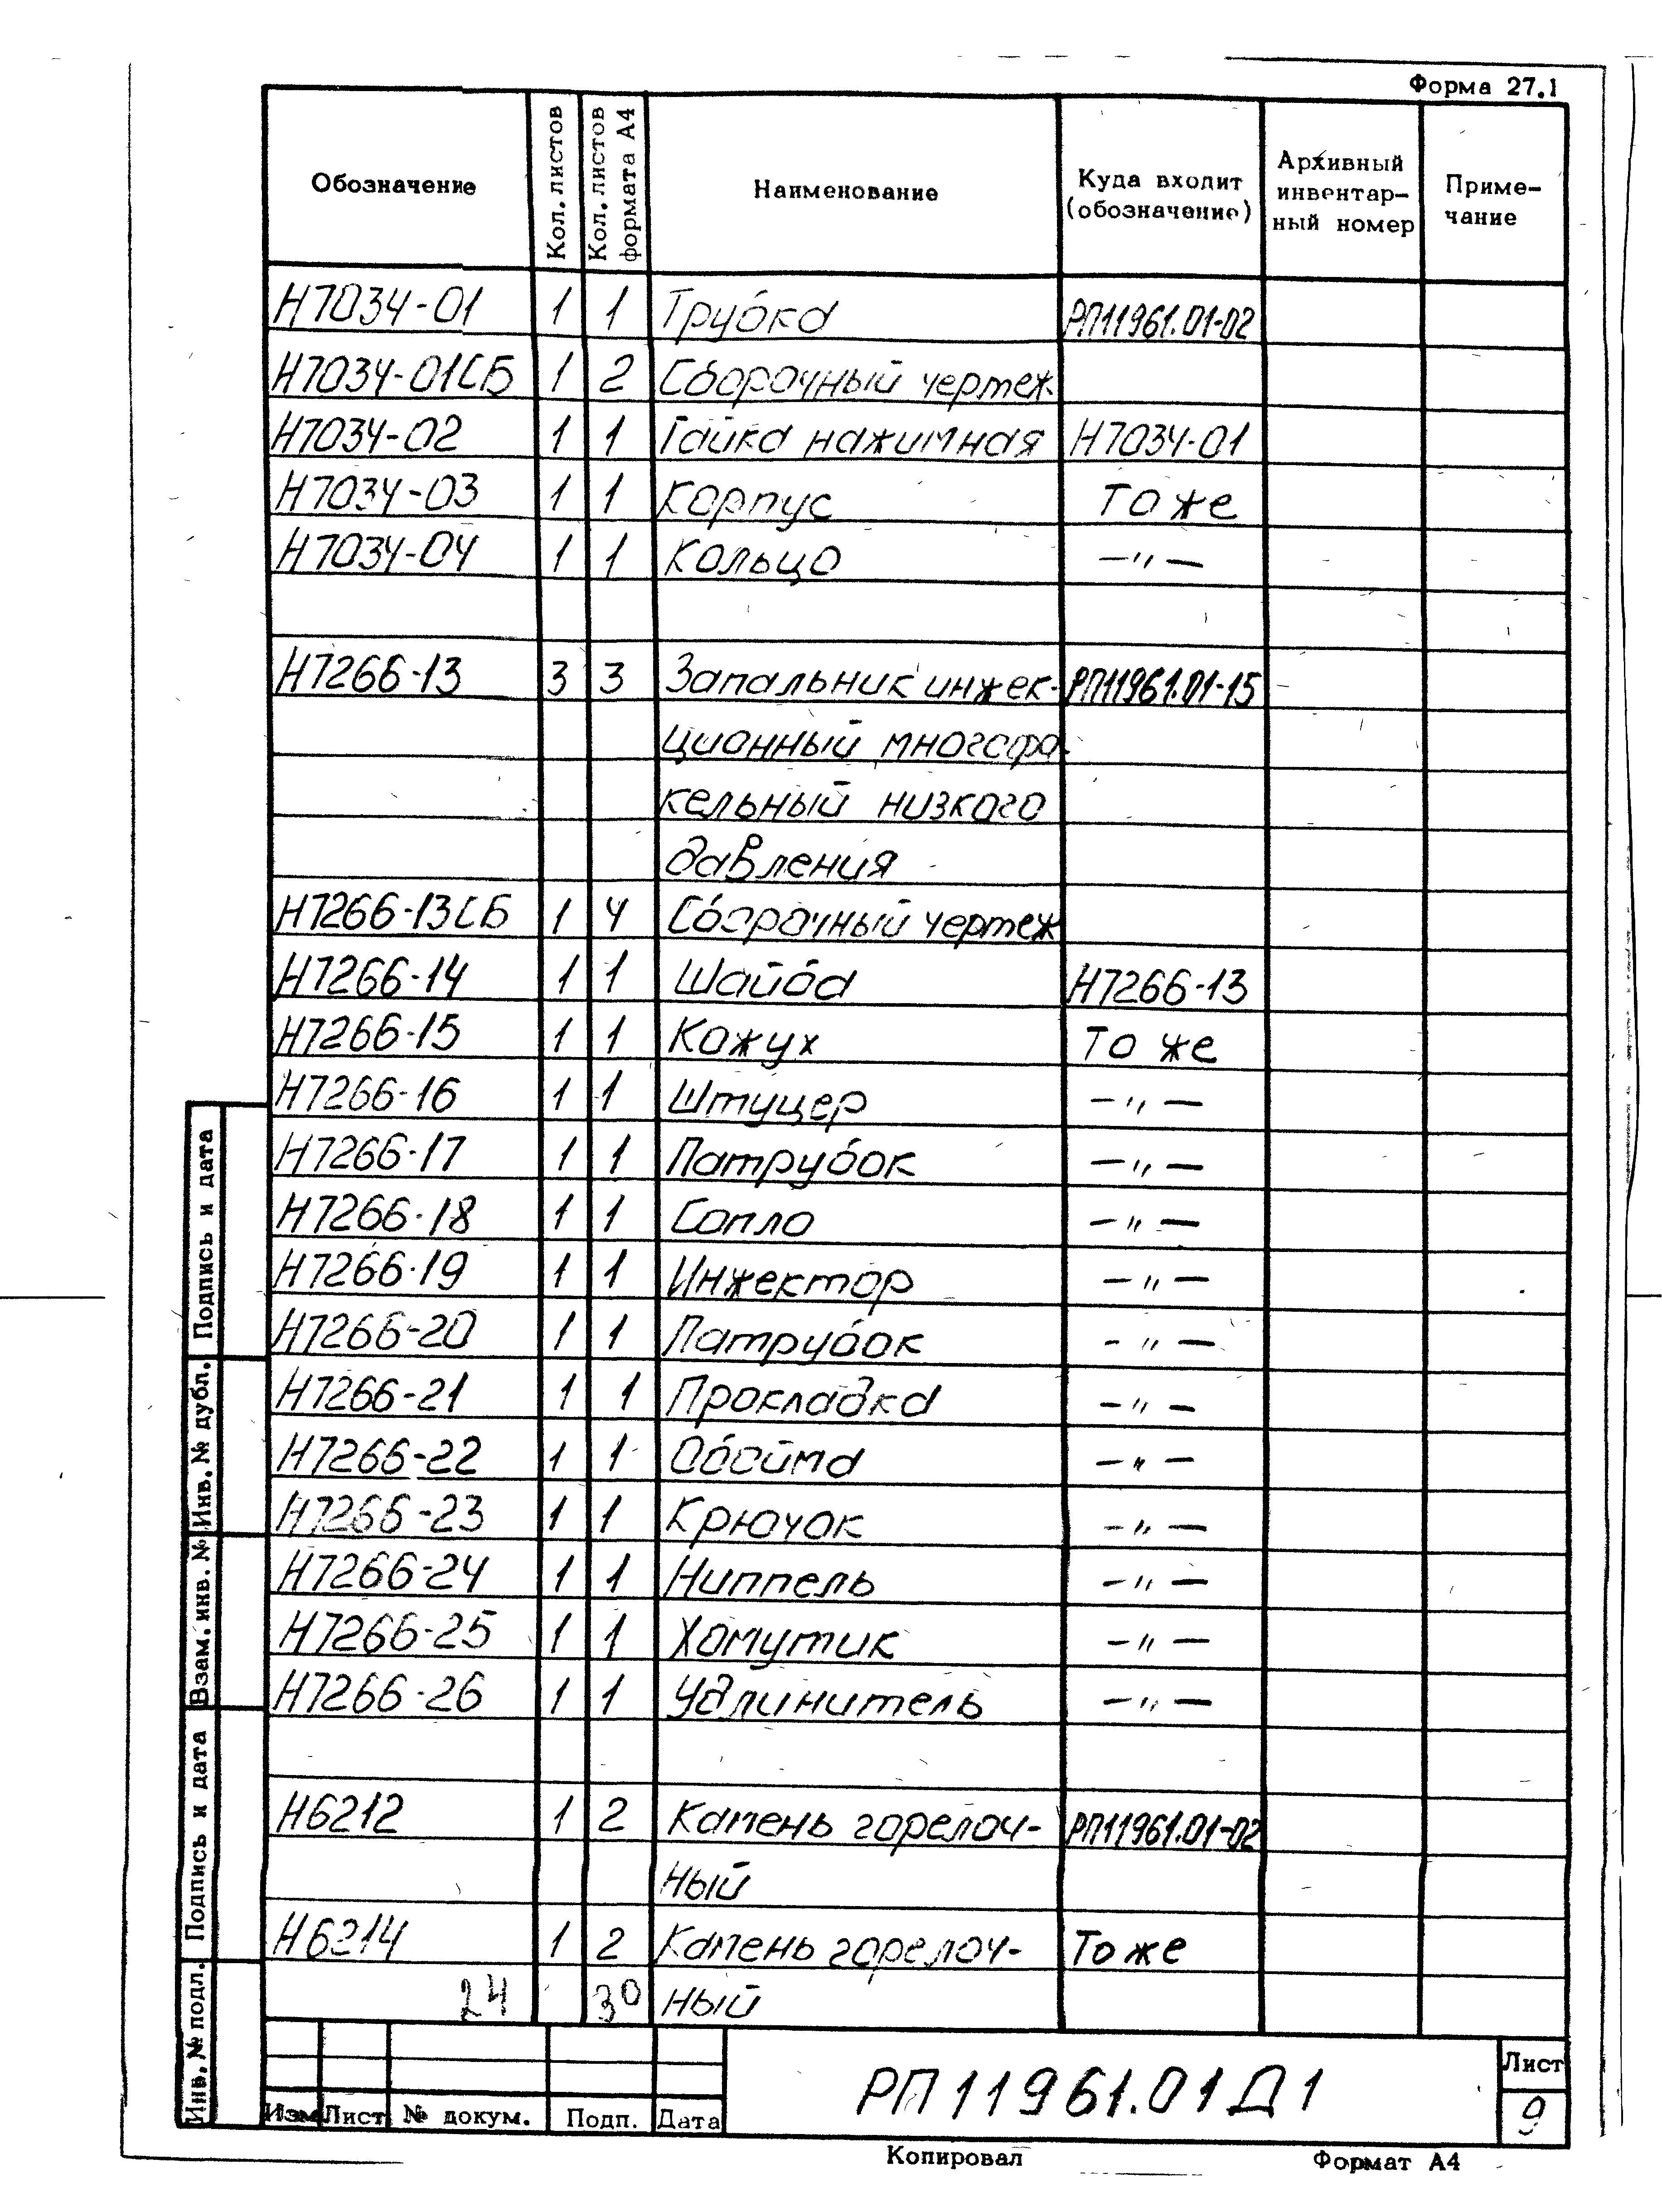 Форма 27.1
Обозначение
Кол. листов
Кол. листов
формата А4
Наименование
Куда входит
(обозначение)
Архивный
инвентар-
ный номер
Приме-
чание
Н7034-01 1 1 Трубка РП11961.01-02
Н7034-01СБ 1 2 Сборочный чертеж
Н7034-02 1 1 Гайка нажимная Н7034-01
Н7034-03 1 1 Корпус То же
Н7034-04 1 1 Кольцо —〃—
Н7266-13 3 3 Запальник инжек- РП11961.01-15
ционный многофа-
кельный низкого
давления
Н7266-13СБ 1 4 Сборочный чертеж
Н7266-14 1 1 Шайба Н7266-13
Н7266-15 1 1 Кожух То же
Н7266-16 1 1 Штуцер —〃—
Н7266-17 1 1 Патрубок —〃—
Н7266-18 1 1 Сопло —〃—
Н7266-19 1 1 Инжектор —〃—
Н7266-20 1 1 Патрубок —〃—
Н7266-21 1 1 Прокладка —〃—
Н7266-22 1 1 Обойма —〃—
Н7266-23 1 1 Крючок —〃—
Н7266-24 1 1 Ниппель —〃—
Н7266-25 1 1 Хомутик —〃—
Н7266-26 1 1 Удлинитель —〃—
Н6212 1 2 Камень горелоч- РП11961.01-02
ный
Н6214 1 2 Камень горелоч- То же
24 30 ный
Подпись и дата
Инв. № дубл.
Взам. инв. №
Подпись и дата
Инв. № подл.
Изм Лист № докум. Подп. Дата
РП11961.01Д1
Лист
9
Копировал
Формат А4